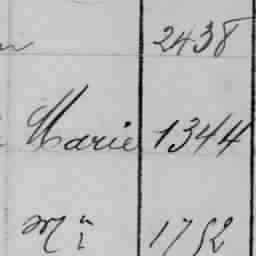 2438
Marie 1344
M 1752